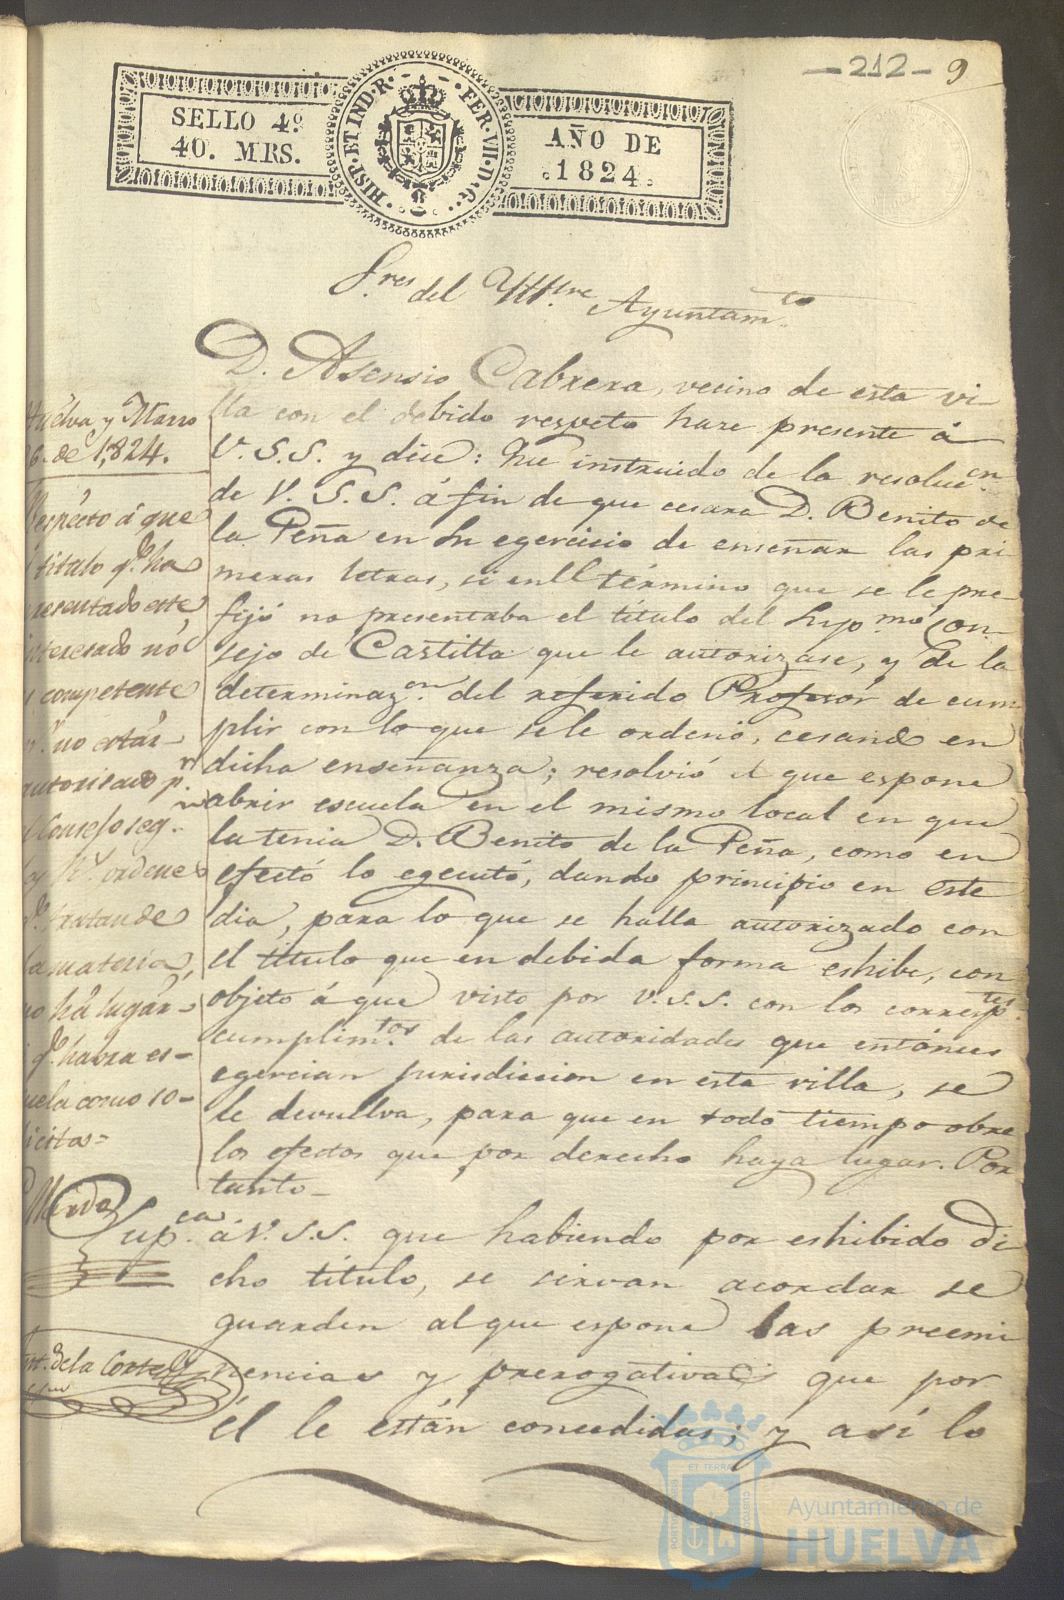 -212- 9
SELLO 4º
40. MRS.
HISP. ET IND. R. FER. VII. D. G.
AÑO DE
1824
S.res del Yll.tre Ayuntam.to
D. Asensio Cabrera, vecino de esta vi-
lla con el debido respeto hase presente á
V.S.S. y dice: Fue instruido de la resolucn.
de V.S.S. á fin de que cesara D. Benito de
la Peña en su egercisio de enseñar las pri
meras letras, si en el término que se le pre-
fijó no presentaba el título del Sup.mo Con-
sejo de Castilla que le autorizase, y de la
determinaz.on del referido Profesor de cum
plir con lo que se le ordenó, cesando en
dicha enseñanza; resolvió el que espone
abrir escuela en el mismo local en que
la tenia D. Benito de la Peña, como en
efectó lo egecutó, dando principio en este
dia, para lo que se halla autorizado con
el titulo que en debida forma eshibe, con
objeto á que visto por V.S.S. con los corresp.tes
cumplim.tos de las autoridades que entónces
egercian jurisdiccion en esta villa, se
le devuelva, para que en todo tiempo obre
los efectos que por derecho haya lugar. Por
tanto-
Sup.ca á V.S.S. que habiendo por eshibido di
cho título, se sirvan acordar se
guarden al que espone las preemi
nencias y prerogativas que por
él le están concedidas; y así lo
Huelva y Marzo
6. de 1,824.
Respecto á que
titulo q.e ha
presentado este
interesado no
competente
no estár
autorizado p.r
Consejo seg.n
r.s ordenes
q.e tratan de
la materia,
no há lugár
q.e habra es-
cuela como so-
licita=
de la Corte
ET TERRA
CUSTODIA
Ayuntamiento de
HUELVA